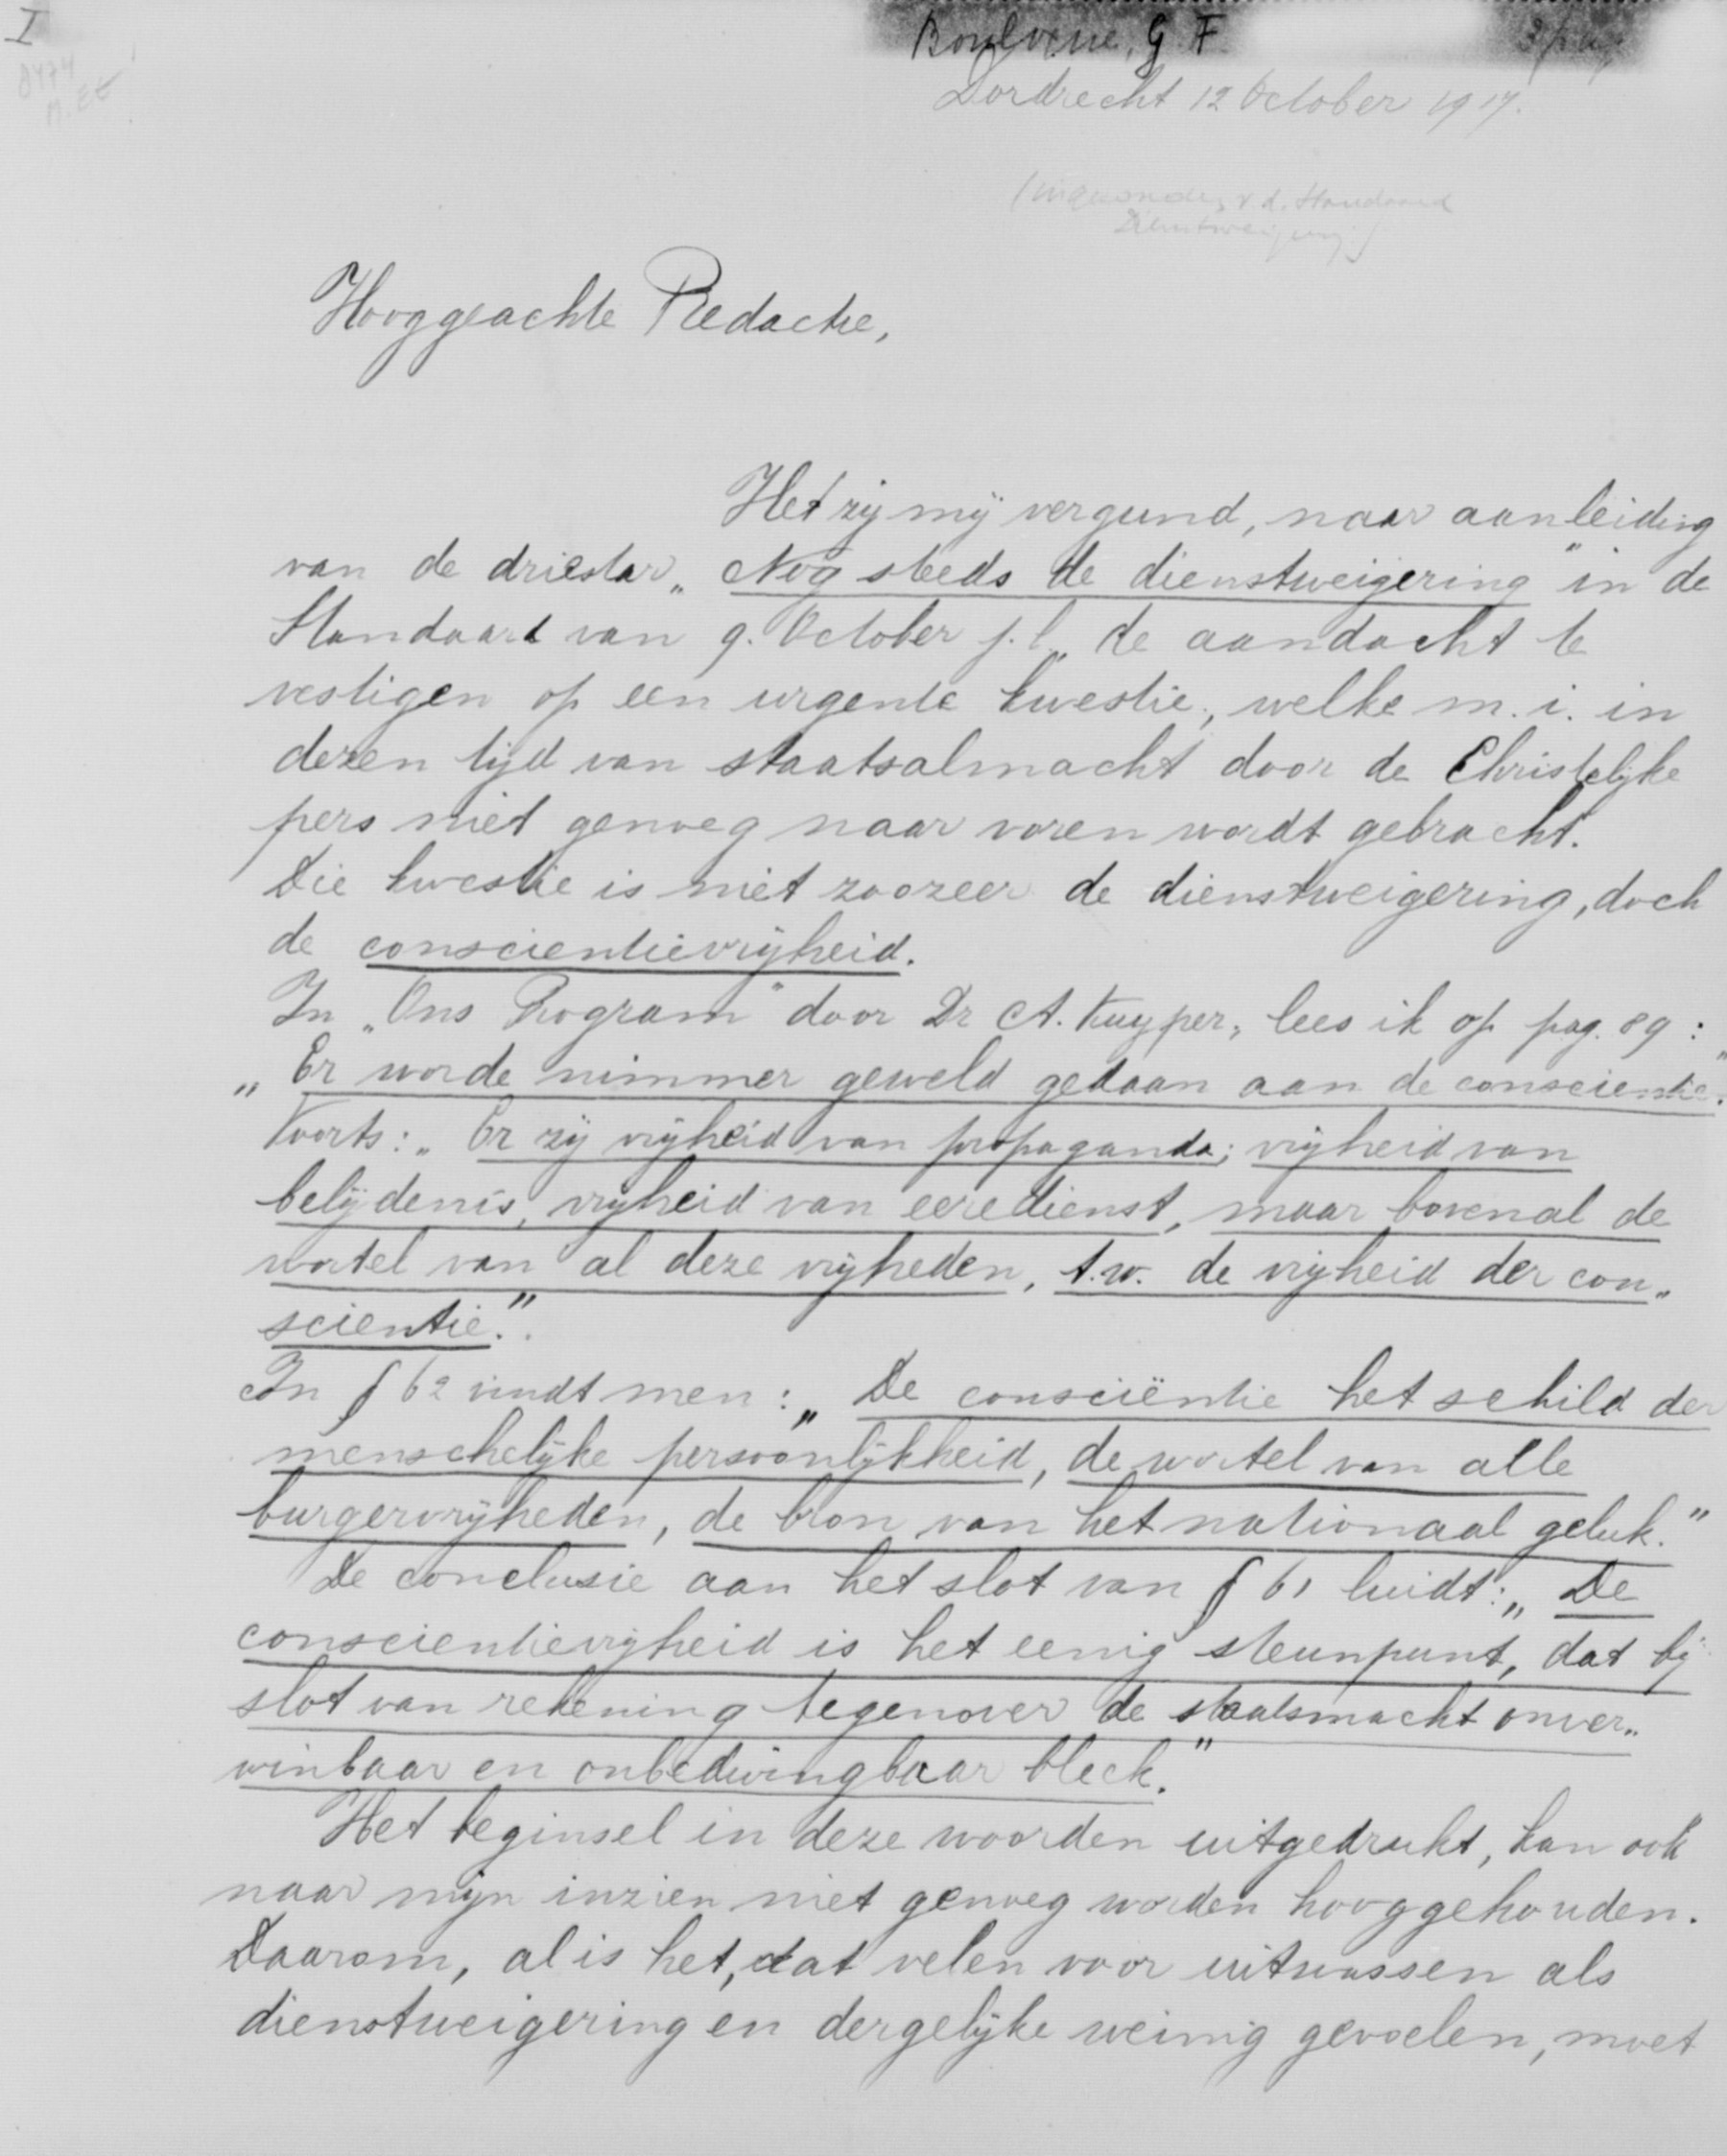 I
G. F.
Dordrecht 12 October 1917.
v. d. Standaard
Dienstweigering)
Hooggeachte Redactie,
Het zij mij vergund, naar aanleiding
van de driestar „Nog steeds de dienstweigering" in de
Standaard van 9. October j.l., de aandacht te
vestigen op een urgente kwestie, welke m. i. in
dezen tijd van staatsalmacht door de Christelijke
pers niet genoeg naar voren wordt gebracht.
Die kwestie is niet zoozeer de dienstweigering, doch
de conscientievrijheid.
In „Ons Program" door Dr A. Kuyper, lees ik op pag. 89:
„Er worde nimmer geweld gedaan aan de conscientie."
Voorts: „Er zij vrijheid van propaganda; vrijheid van
belijdenis, vrijheid van eeredienst, maar bovenal de
wortel van al deze vrijheden, t.w. de vrijheid der con„
scientie.".
In § 62 vindt men: „De consciëntie het schild der
menschelijke persoonlijkheid, de wortel van alle
burgervrijheden, de bron van het nationaal geluk."
De conclusie aan het slot van § 61 luidt: „De
conscientievrijheid is het eenig steunpunt, dat bij
slot van rekening tegenover de staatsmacht onver„
winbaar en onbedwingbaar bleek."
Het beginsel in deze woorden uitgedrukt, kan ook
naar mijn inzien niet genoeg worden hooggehouden.
Daarom, al is het, dat velen voor uitwassen als
dienstweigering en dergelijke weinig gevoelen, moet